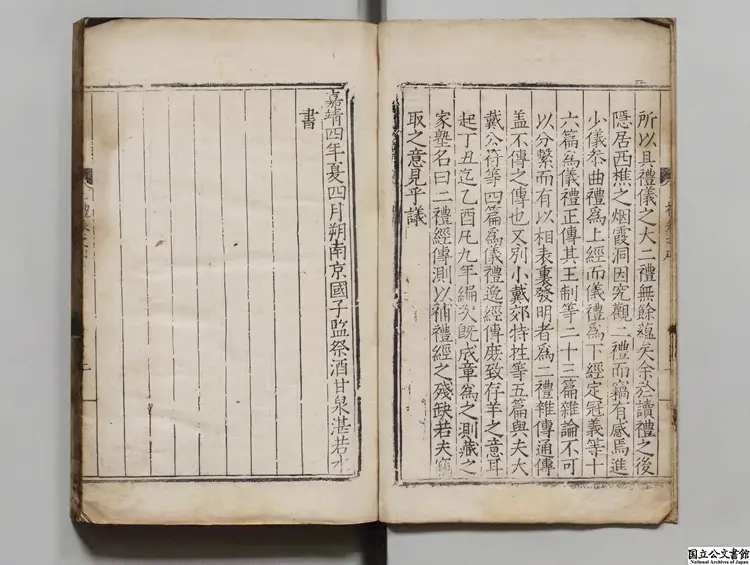 所以具禮儀之大二禮無餘蘊矣余於讀禮之後
隱居西樵之烟霞洞因究觀二禮而竊有感焉進
少儀叅曲禮為上經而儀禮為下經定冠義等十
六篇為儀禮正傳其王制等二十三篇雜論不可
以分繫而有以相表裏發明者為二禮雜傳通傳
盖不傳之傳也又别小戴郊特牲等五篇與夫大
戴公符等四篇為儀禮逸經傳庶致存羊之意耳
起丁丑迄乙酉凡九年編次既成章為之測藏之
家塾名曰二禮經傳測以補禮經之殘缺若夫竊
取之意見乎議
嘉靖四年夏四月朔南京國子監祭酒甘泉湛若水
書
国立公文書館
National Archives of Japan